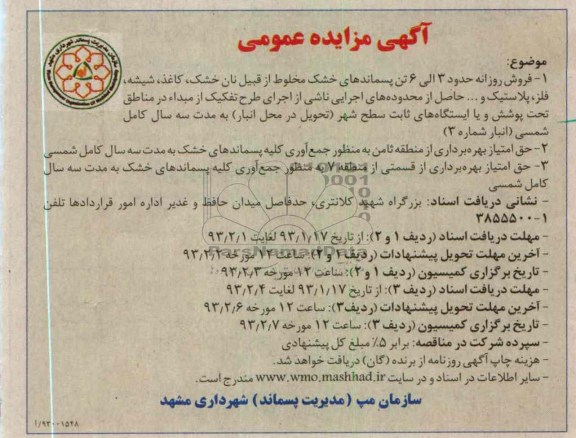 آگهی مزایده عمومی
موضوع:
۱- فروش روزانه حدود ۳ الی ۶ تن پسماندهای خشک مخلوط از قبیل نان خشک، کاغذ، شیشه،
فلز، پلاستیک و ... حاصل از محدوده‌های اجرایی ناشی از اجرای طرح تفکیک از مبداء در مناطق
تحت پوشش و یا ایستگاه‌های ثابت سطح شهر (تحویل در محل انبار) به مدت سه سال کامل
شمسی (انبار شماره ۳)
۲- حق امتیاز بهره‌برداری از منطقه ثامن به منظور جمع‌آوری کلیه پسماندهای خشک به مدت سه سال کامل شمسی
۳- حق امتیاز بهره‌برداری از قسمتی از منطقه ۷ به منظور جمع‌آوری کلیه پسماندهای خشک به مدت سه سال
کامل شمسی
- نشانی دریافت اسناد: بزرگراه شهید کلانتری، حدفاصل میدان حافظ و غدیر اداره امور قراردادها تلفن
۳۸۵۵۵۰۰-۱
- مهلت دریافت اسناد (ردیف ۱ و ۲): از تاریخ ۹۳/۱/۱۷ لغایت ۹۳/۲/۱
- آخرین مهلت تحویل پیشنهادات (ردیف ۱ و ۲): ساعت ۱۲ مورخه ۹۳/۲/۲
- تاریخ برگزاری کمیسیون (ردیف ۱ و ۲): ساعت ۱۲ مورخه ۹۳/۲/۳
- مهلت دریافت اسناد (ردیف ۳): از تاریخ ۹۳/۱/۱۷ لغایت ۹۳/۲/۴
- آخرین مهلت تحویل پیشنهادات (ردیف ۳): ساعت ۱۲ مورخه ۹۳/۲/۶
- تاریخ برگزاری کمیسیون (ردیف ۳): ساعت ۱۲ مورخه ۹۳/۲/۷
- سپرده شرکت در مناقصه: برابر ۵٪ مبلغ کل پیشنهادی
- هزینه چاپ آگهی روزنامه از برنده (گان) دریافت خواهد شد.
- سایر اطلاعات در اسناد و در سایت www.wmo.mashhad.ir مندرج است.
سازمان مپ (مدیریت پسماند) شهرداری مشهد
۱/۹۳۰۰۱۵۴۸